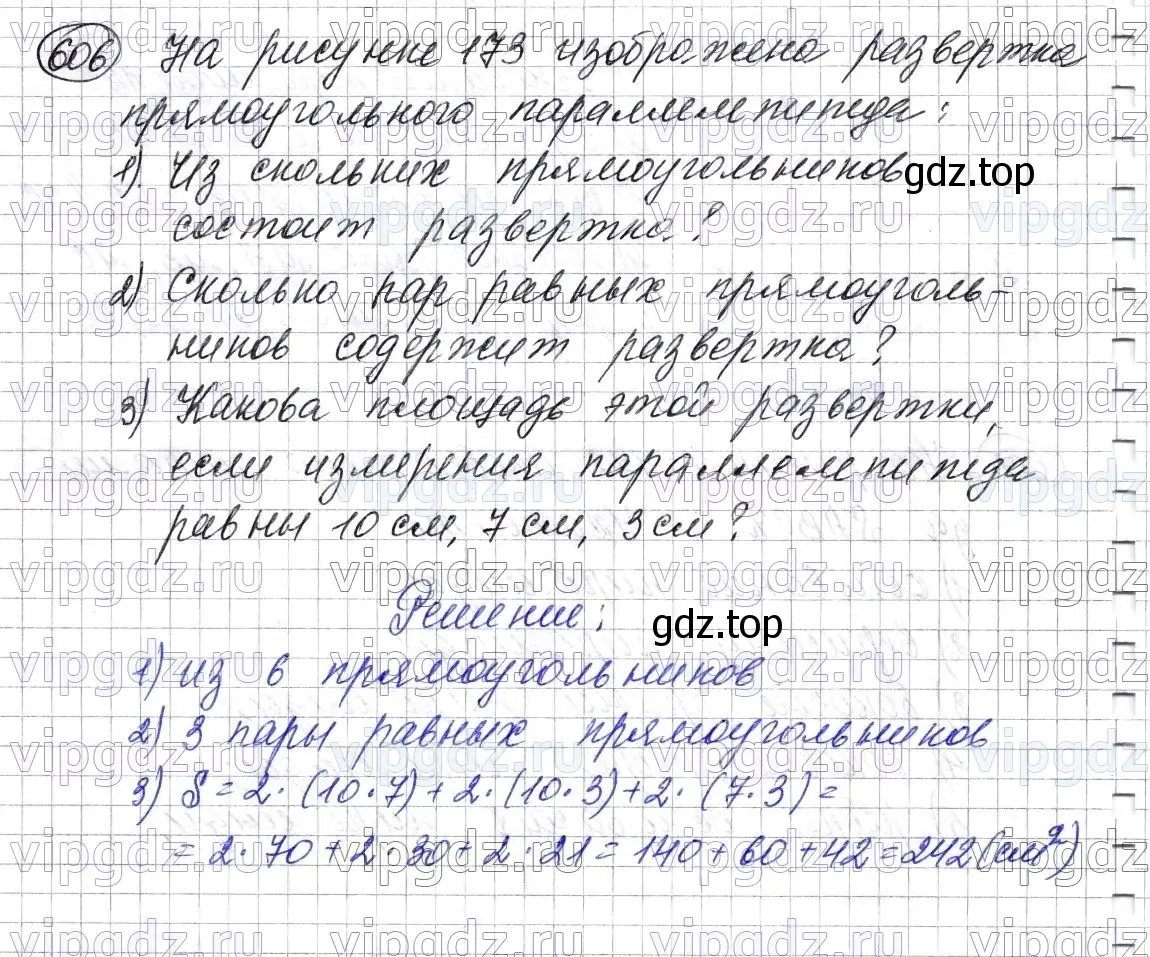 606 На рисунке 173 изображена развертка
прямоугольного параллелепипеда:
1). Из скольких прямоугольников
gdz.top
состоит развертка?
2) Сколько пар равных прямоуголь-
ников содержит развертка?
3) Какова площадь этой развертки,
если измерения параллелепипеда
равны 10 см, 7 см, 3 см?
Решение:
gdz.top
1) из 6 прямоугольников
2) 3 пары равных прямоугольников
3) S = 2 · (10 · 7) + 2 · (10 · 3) + 2 · (7 · 3) =
= 2 · 70 + 2 · 30 + 2 · 21 = 140 + 60 + 42 = 242 (см²)
vipgdz.ru